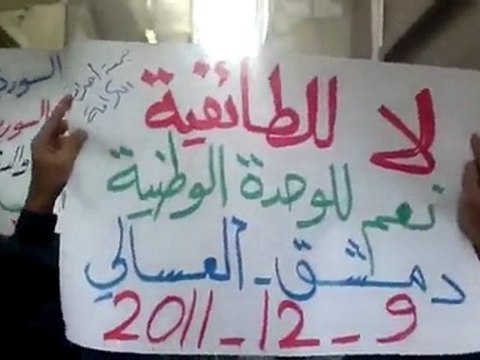 لا للطائفية
نعم للوحدة الوطنية
دمشق - العسالي
9 - 12 - 2011
السوري